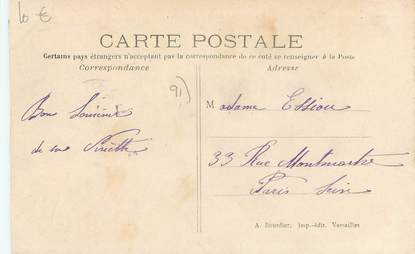 10 €
CARTE POSTALE
Certains pays étrangers n'acceptant pas la correspondance de ce coté se renseigner à la Poste
Correspondance
Adresse
91)
Madame Essiou
Bon Souvenir
de ma
33 Rue Montmartre
Paris Seine
A. Bourdier, imp.-édit. Versailles